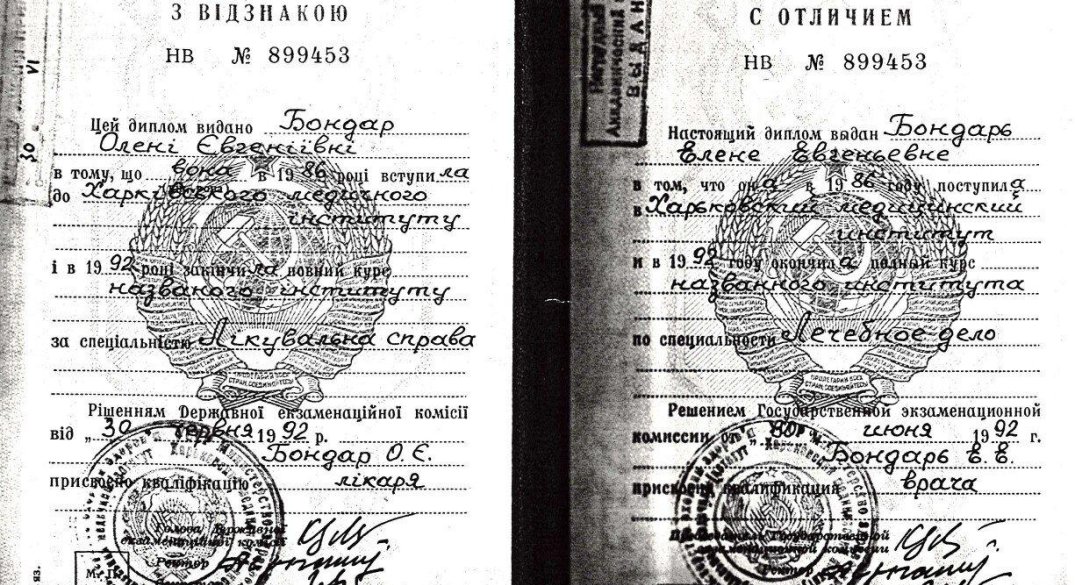 З ВІДЗНАКОЮ
НВ № 899453
Цей диплом видано Бондар
Олені Євгеніївні
в тому, що вона в 1986 році вступила
до Харківського медичного
інституту
і в 1992 році закінчила повний курс
названого інституту
за спеціальністю Лікувальна справа
ПРОЛЕТАРИИ ВСЕХ
СТРАН, СОЕДИНЯЙТЕСЬ!
Рішенням Державної екзаменаційної комісії
від „30 червня 1992 р.
Бондар О.Є.
присвоєно кваліфікацію лікаря
Голова Державної
екзаменаційної комісії
Ректор
М. П.
С ОТЛИЧИЕМ
НВ № 899453
ВЫДАН
Настоящий диплом выдан Бондарь
Елене Евгеньевне
в том, что она в 1986 году поступила
в Харьковский медицинский
институт
и в 1992 году окончила полный курс
названного института
по специальности Лечебное дело
ПРОЛЕТАРИИ ВСЕХ
СТРАН, СОЕДИНЯЙТЕСЬ!
Решением Государственной экзаменационной
комиссии от „30 июня 1992 г.
Бондарь Е.Е.
присвоена квалификация врача
Председатель Государственной
экзаменационной комиссии
Ректор